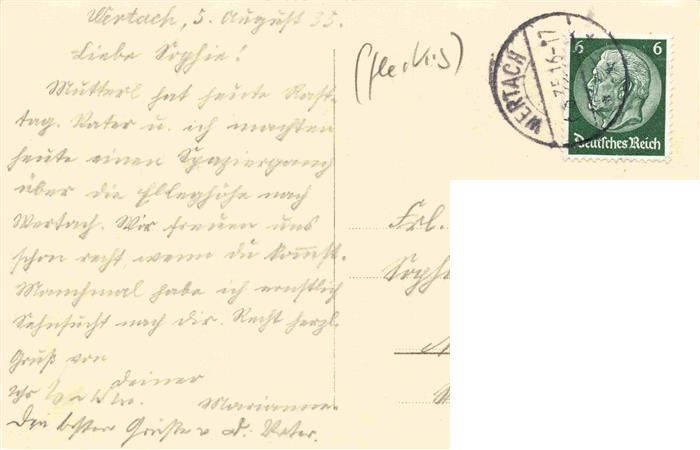 Wertach, 5. August 35.
Liebe Sophie!
Mutterl hat heute Rast-
tag. Vater u. ich machten
heute einen Spaziergang
über die Elleghöhe nach
Wertach. Wir freuen uns
schon recht, wenn du kommst.
Manchmal habe ich ernstlich
Sehnsucht nach dir. Recht herzl.
Gruß von
deiner
Marianne.
Grüße v. d. Vater.
(fleckig)
WERTACH
6 6
Deutsches Reich
Frl.
Soph